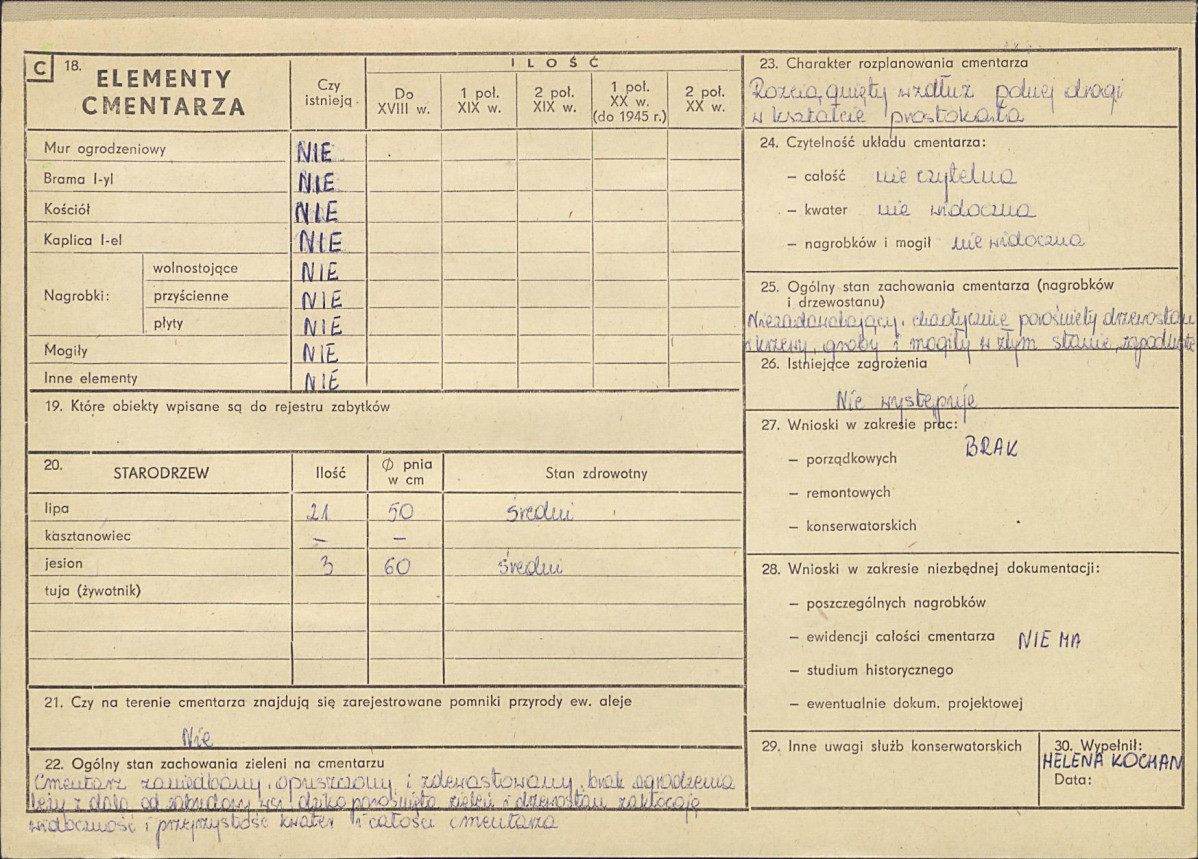 C 18. ELEMENTY CMENTARZA
Czy istnieją
ILOŚĆ
Do XVIII w.
1 poł. XIX w.
2 poł. XIX w.
1 poł. XX w. (do 1945 r.)
2 poł. XX w.
Mur ogrodzeniowy NIE
Brama I-yl NIE
Kościół NIE
Kaplica I-el NIE
Nagrobki: wolnostojące NIE
przyścienne NIE
płyty NIE
Mogiły NIE
Inne elementy NIE
19. Które obiekty wpisane są do rejestru zabytków
20. STARODRZEW Ilość Ø pnia w cm Stan zdrowotny
lipa 21 50 średni
kasztanowiec – –
jesion 3 60 średni
tuja (żywotnik)
21. Czy na terenie cmentarza znajdują się zarejestrowane pomniki przyrody ew. aleje
Nie
22. Ogólny stan zachowania zieleni na cmentarzu
Cmentarz zaniedbany, opuszczony i zdewastowany, brak ogrodzenia
leży z dala od zabudowy wsi dziko porośnięta zieleń i drzewostan zakłócają
widoczność i przejrzystość kwater i całości cmentarza
23. Charakter rozplanowania cmentarza
Rozciągnięty wzdłuż polnej drogi
w kształcie prostokąta
24. Czytelność układu cmentarza:
– całość nie czytelna
– kwater nie widoczna
– nagrobków i mogił nie widoczna
25. Ogólny stan zachowania cmentarza (nagrobków
i drzewostanu)
Niezadowalający, chaotycznie porośnięty drzewostan
i krzewy, groby i mogiły w złym stanie, zapadnięte
26. Istniejące zagrożenia
Nie występuje
27. Wnioski w zakresie prac:
BRAK
– porządkowych
– remontowych
– konserwatorskich
28. Wnioski w zakresie niezbędnej dokumentacji:
– poszczególnych nagrobków
– ewidencji całości cmentarza NIE MA
– studium historycznego
– ewentualnie dokum. projektowej
29. Inne uwagi służb konserwatorskich
30. Wypełnił:
HELENA KOCHAN
Data: